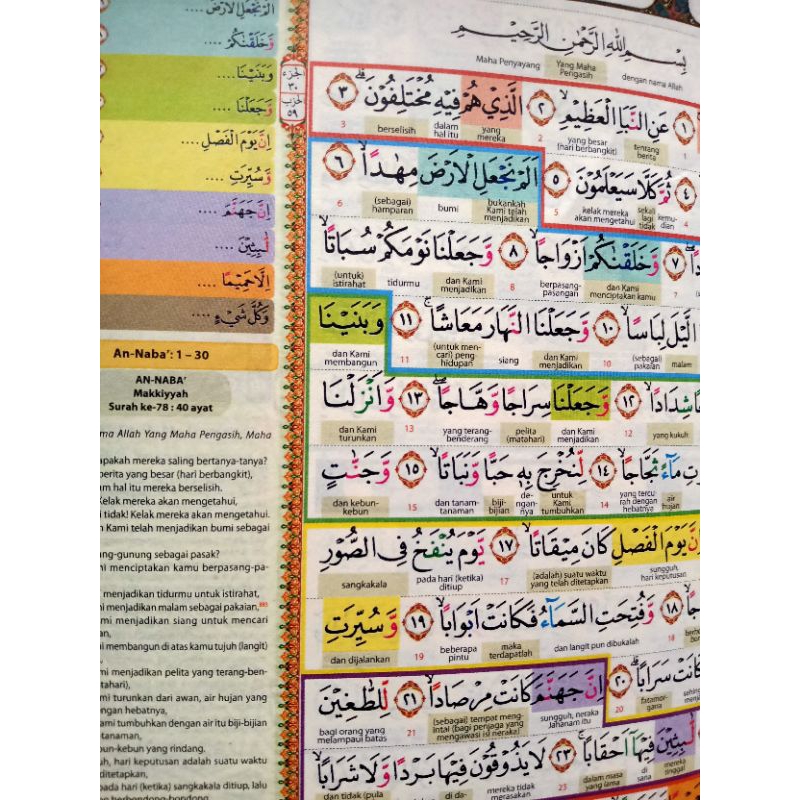 اَلَمْ نَجْعَلِ الْاَرْضَ ....
وَّخَلَقْنٰكُمْ ....
وَبَنَيْنَا ....
وَّجَعَلْنَا ....
اِنَّ يَوْمَ الْفَصْلِ ....
وَّسُيِّرَتِ ....
اِنَّ جَهَنَّمَ ....
لّٰبِثِيْنَ ....
اِلَّا حَمِيْمًا ....
وَكُلَّ شَيْءٍ ....
An-Naba': 1 – 30
AN-NABA'
Makkiyyah
Surah ke-78 : 40 ayat
Allah Yang Maha Pengasih, Maha
apakah mereka saling bertanya-tanya?
berita yang besar (hari berbangkit),
hal itu mereka berselisih.
Kelak mereka akan mengetahui,
tidak! Kelak mereka akan mengetahui.
Kami telah menjadikan bumi sebagai
gunung sebagai pasak?
menciptakan kamu berpasang-pa-
menjadikan tidurmu untuk istirahat,
menjadikan malam sebagai pakaian,
menjadikan siang untuk mencari
membangun di atas kamu tujuh (langit)
menjadikan pelita yang terang-ben-
(matahari),
turunkan dari awan, air hujan yang
dengan hebatnya,
tumbuhkan dengan air itu biji-bijian
tanaman,
kebun yang rindang.
hari keputusan adalah suatu waktu
ditetapkan,
pada hari (ketika) sangkakala ditiup, lalu
berbondong-bondong
الجزء
٣٠
حزب
٥٩
بِسْمِ اللّٰهِ الرَّحْمٰنِ الرَّحِيْمِ
dengan nama Allah Yang Maha Pengasih Maha Penyayang
١ عَنِ النَّبَاِ الْعَظِيْمِۙ ٢ الَّذِيْ هُمْ فِيْهِ مُخْتَلِفُوْنَۗ ٣
1 tentang berita yang besar (hari berbangkit) 2 yang mereka dalam hal itu berselisih 3
٤ ثُمَّ كَلَّا سَيَعْلَمُوْنَ ٥ اَلَمْ نَجْعَلِ الْاَرْضَ مِهٰدًاۙ ٦
4 kemudian sekali lagi tidak kelak mereka akan mengetahui 5 bukankah Kami telah menjadikan bumi (sebagai) hamparan 6
٧ وَّخَلَقْنٰكُمْ اَزْوَاجًاۙ ٨ وَّجَعَلْنَا نَوْمَكُمْ سُبَاتًاۙ
7 dan Kami menciptakan kamu berpasang-pasangan 8 dan Kami menjadikan tidurmu (untuk) istirahat
الَّيْلَ لِبَاسًاۙ ١٠ وَّجَعَلْنَا النَّهَارَ مَعَاشًاۚ ١١ وَبَنَيْنَا
malam (sebagai) pakaian 10 dan Kami menjadikan siang (untuk mencari) penghidupan 11 dan Kami membangun
شِدَادًاۙ ١٢ وَّجَعَلْنَا سِرَاجًا وَّهَّاجًاۖ ١٣ وَّاَنْزَلْنَا
yang kukuh 12 dan Kami menjadikan pelita (matahari) yang terang-benderang 13 dan Kami turunkan
مَاۤءً ثَجَّاجًاۙ ١٤ لِّنُخْرِجَ بِهٖ حَبًّا وَّنَبَاتًاۙ ١٥ وَّجَنّٰتٍ
air hujan yang tercurah dengan hebatnya 14 untuk Kami tumbuhkan dengannya biji-bijian dan tanam-tanaman 15 dan kebun-kebun
اِنَّ يَوْمَ الْفَصْلِ كَانَ مِيْقَاتًاۙ ١٧ يَّوْمَ يُنْفَخُ فِى الصُّوْرِ
sungguh, hari keputusan (adalah) suatu waktu yang telah ditetapkan 17 pada hari (ketika) ditiup sangkakala
١٨ وَّفُتِحَتِ السَّمَاۤءُ فَكَانَتْ اَبْوَابًاۙ ١٩ وَّسُيِّرَتِ
18 dan langit pun dibukalah maka terdapatlah beberapa pintu 19 dan dijalankan
كَانَتْ سَرَابًاۗ ٢٠ اِنَّ جَهَنَّمَ كَانَتْ مِرْصَادًاۙ ٢١ لِّلطّٰغِيْنَ
fatamorgana 20 sungguh, neraka Jahanam itu (sebagai) tempat mengintai (bagi penjaga yang mengawasi isi neraka) 21 bagi orang yang melampaui batas
لّٰبِثِيْنَ فِيْهَآ اَحْقَابًاۚ ٢٣ لَا يَذُوْقُوْنَ فِيْهَا بَرْدًا وَّلَا شَرَابًاۙ
mereka tinggal di sana dalam masa yang lama 23 mereka tidak merasakan di da- dan tidak (pula